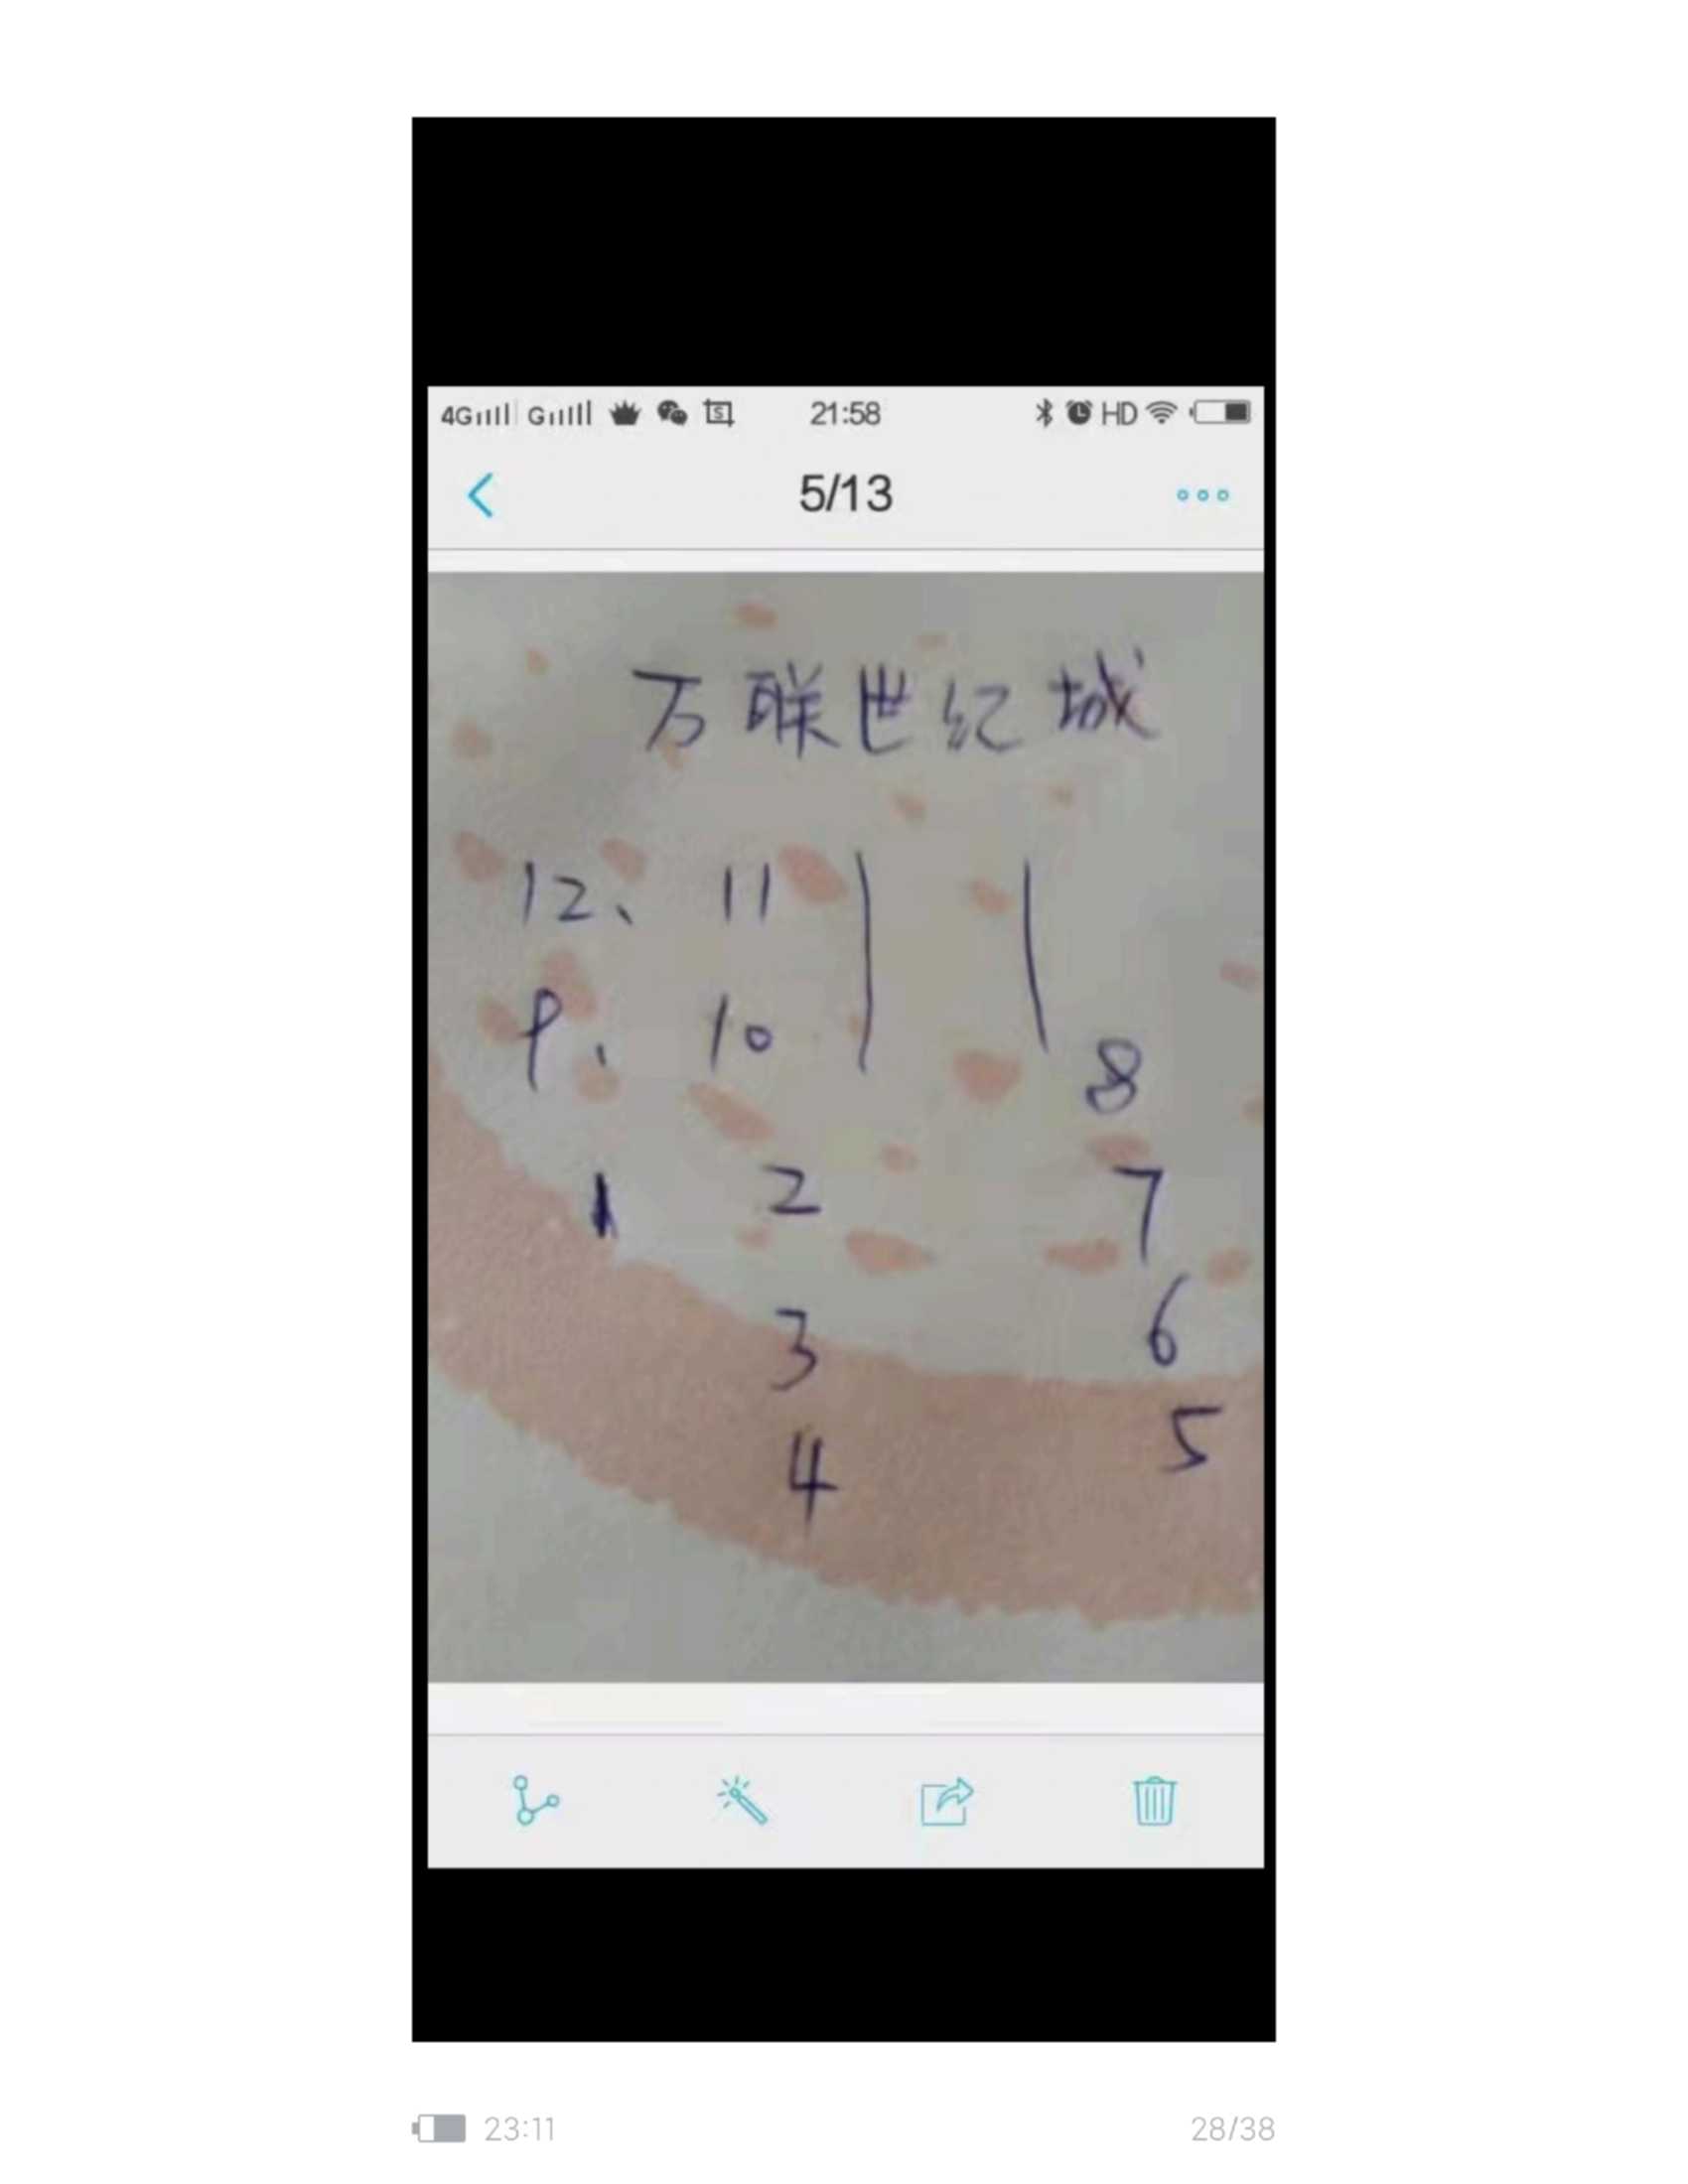 4G G 21:58 HD
5/13
万联世纪城
12、 11
9、 10
8
1 2 7
3 6
4 5
23:11 28/38